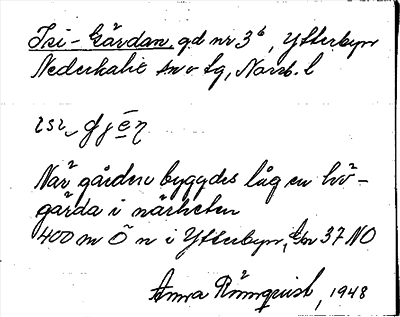 Isi-Gärdan gd nr 3⁶, Ytterbyn
Nederkalix sn o tg, Norrb. l
När gården byggdes låg en hö-
gärda i närheten
400 m Ö n i Ytterbyn, Gr 37 NO
Anna Rönnquist, 1948